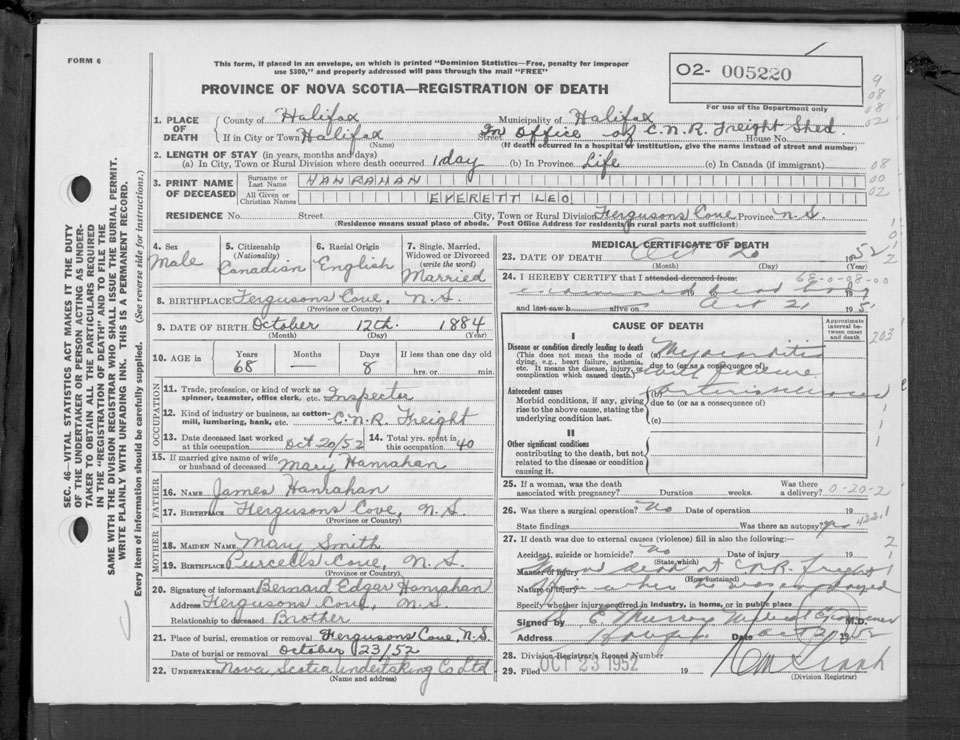 FORM 6
This form, if placed in an envelope, on which is printed "Dominion Statistics—Free, penalty for improper
use $300," and properly addressed will pass through the mail "FREE"
PROVINCE OF NOVA SCOTIA—REGISTRATION OF DEATH
O2- 005220
For use of the Department only
9
08
08
02
1. PLACE OF DEATH
County of Halifax Municipality of Halifax
If in City or Town Halifax Street In Office of C.N.R. Freight Shed House No.
(Name) (If death occurred in a hospital or institution, give the name instead of street and number)
2. LENGTH OF STAY (in years, months and days)
(a) In City, Town or Rural Division where death occurred 1 day (b) In Province Life (c) In Canada (if immigrant)
08
00
02
3. PRINT NAME OF DECEASED
Surname or Last Name HANRAHAN
All Given or Christian Names EVERETT LEO
RESIDENCE No. Street City, Town or Rural Division Fergusons Cove Province N.S.
(Residence means usual place of abode. Post Office Address for residents in rural parts not sufficient)
4. Sex Male
5. Citizenship (Nationality) Canadian
6. Racial Origin English
7. Single, Married, Widowed or Divorced (write the word) Married
8. BIRTHPLACE Fergusons Cove, N.S.
(Province or Country)
9. DATE OF BIRTH October 12th. 1884
(Month) (Day) (Year)
10. AGE in Years 68 Months — Days 8 If less than one day old hrs. or min.
OCCUPATION
11. Trade, profession, or kind of work as spinner, teamster, office clerk, etc. Inspector
12. Kind of industry or business, as cotton-mill, lumbering, bank, etc. C.N.R. Freight
13. Date deceased last worked at this occupation Oct 20/52 14. Total yrs. spent in this occupation 40
15. If married give name of wife or husband of deceased Mary Hanrahan
FATHER
16. NAME James Hanrahan
17. BIRTHPLACE Fergusons Cove, N.S.
(Province or Country)
MOTHER
18. MAIDEN NAME Mary Smith
19. BIRTHPLACE Purcells Cove, N.S.
(Province or Country)
20. Signature of informant Bernard Edgar Hanrahan
Address Fergusons Cove, N.S.
Relationship to deceased Brother
21. Place of burial, cremation or removal Fergusons Cove, N.S.
Date of burial or removal October 23/52
22. UNDERTAKER Nova Scotia Undertaking Co Ltd
(Name and address)
MEDICAL CERTIFICATE OF DEATH
23. DATE OF DEATH Oct 20 1952
(Month) (Day) (Year)
24. I HEREBY CERTIFY that I attended deceased from: 68-0-08-00
examined dead body
19 19
and last saw h alive on Oct 2 195
CAUSE OF DEATH
Approximate interval between onset and death
203
I
Disease or condition directly leading to death
(This does not mean the mode of dying, e.g., heart failure, asthenia, etc. It means the disease, injury, or complication which caused death.)
(a) Myocarditis
due to (or as a consequence of)
Antecedent causes
Morbid conditions, if any, giving rise to the above cause, stating the underlying condition last.
(b)
due to (or as a consequence of)
(c)
II
Other significant conditions
contributing to the death, but not related to the disease or condition causing it.
25. If a woman, was the death associated with pregnancy? Duration weeks. Was there a delivery? 0-20-2
26. Was there a surgical operation? No Date of operation 19
State findings Was there an autopsy? No 422.1
27. If death was due to external causes (violence) fill in also the following:—
Accident, suicide or homicide? No Date of injury 19
(State which)
Manner of injury Found dead at C.N.R. freight
(How sustained)
Nature of injury office where he was employed
Specify whether injury occurred in industry, in home, or in public place
Signed by E. Murray Medical Examiner M.D.
Address Date Oct 20 1952
28. Division Registrar's Record Number
29. Filed OCT 23 1952 19
(Division Registrar)
SEC. 46—VITAL STATISTICS ACT MAKES IT THE DUTY
OF THE UNDERTAKER OR PERSON ACTING AS UNDER-
TAKER TO OBTAIN ALL THE PARTICULARS REQUIRED
IN THE "REGISTRATION OF DEATH" AND TO FILE THE
SAME WITH THE DIVISION REGISTRAR WHO SHALL ISSUE THE BURIAL PERMIT.
WRITE PLAINLY WITH UNFADING INK. THIS IS A PERMANENT RECORD.
Every item of information should be carefully supplied. (See reverse side for instructions.)